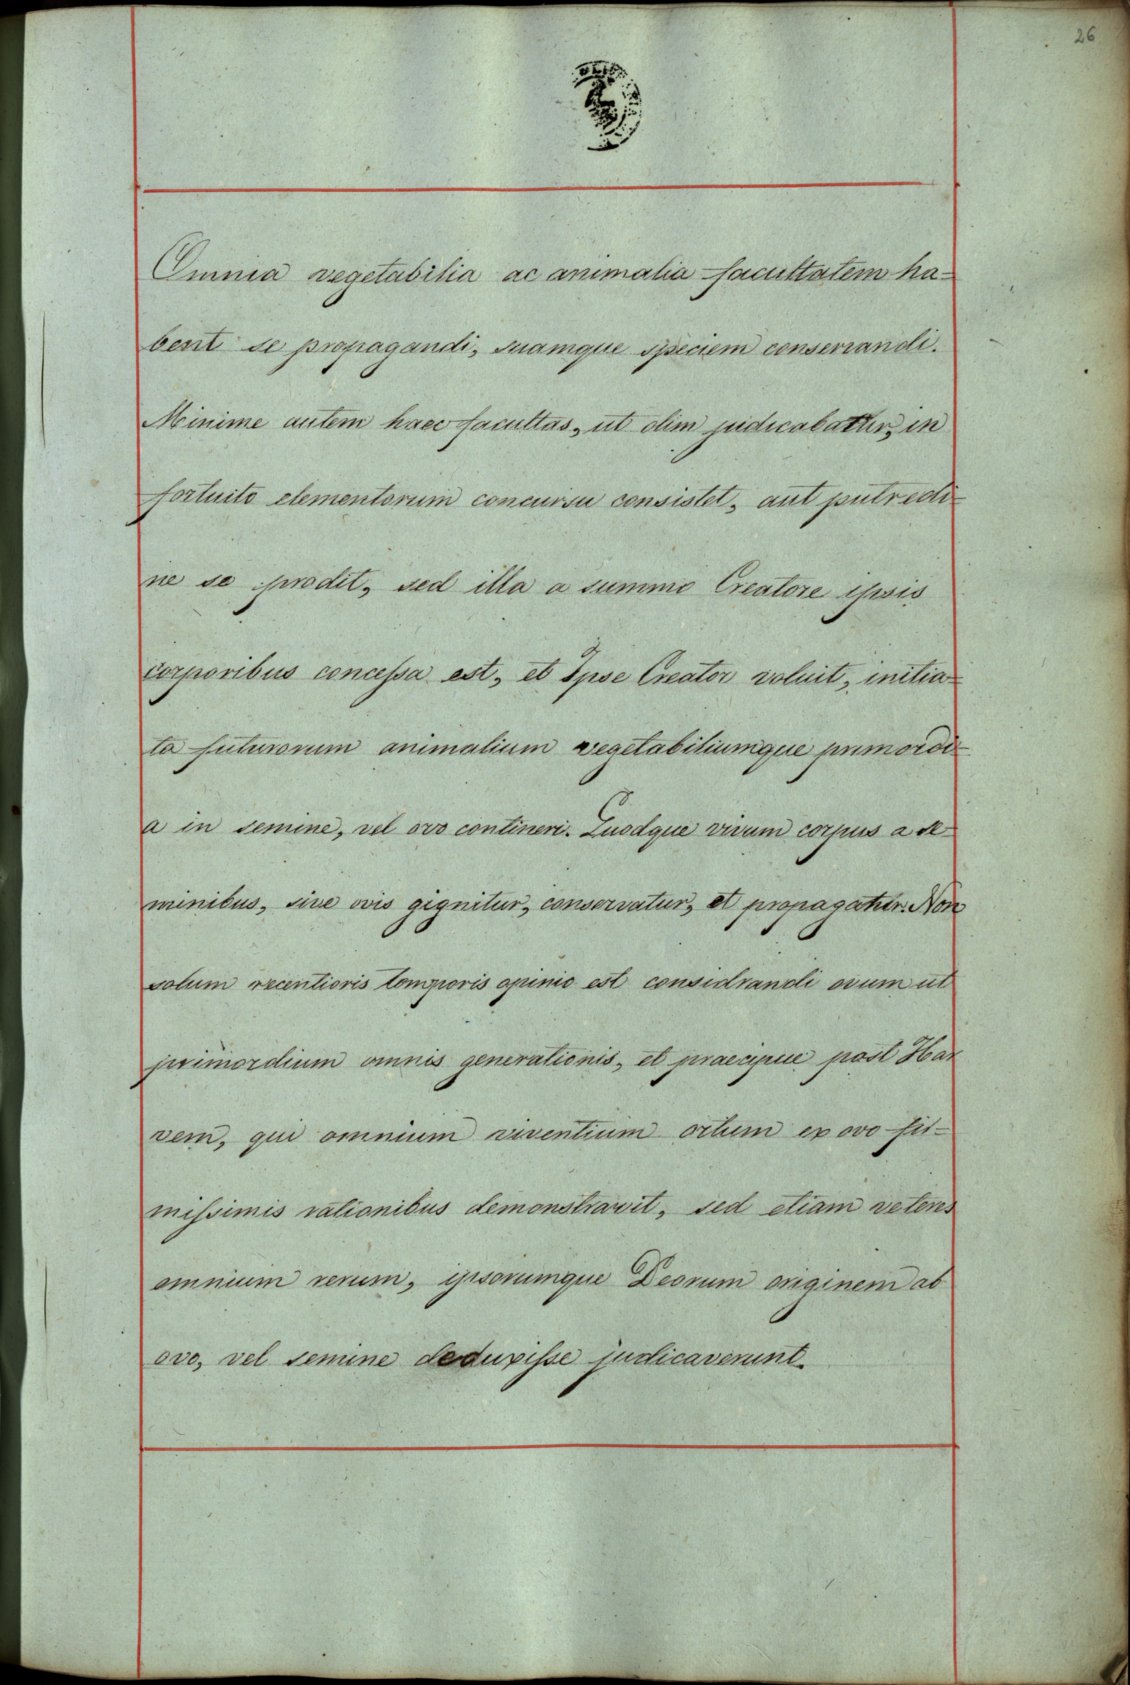 26
Omnia vegetabilia ac animalia facultatem ha-
bent se propagandi, suamque speciem conservandi.
Minime autem haec facultas, ut olim judicabatur, in
fortuito elementorum concursu consistet, aut putredi-
ne se prodit, sed illa a summo Creatore ipsis
corporibus concessa est, et Ipse Creator voluit, initia-
ta futurorum animalium vegetabiliumque primordi-
a in semine, vel ovo contineri. Quodque vivum corpus a se-
minibus, sive ovis gignitur, conservatur, et propagatur. Non
solum recentioris temporis opinio est considrandi ovum ut
primordium omnis generationis, et praecipue post Har
vem, qui omnium viventium ortum ex ovo fir-
missimis rationibus demonstravit, sed etiam veteres
omnium rerum, ipsorumque Deorum originem ab
ovo, vel semine deduxisse judicaverunt.